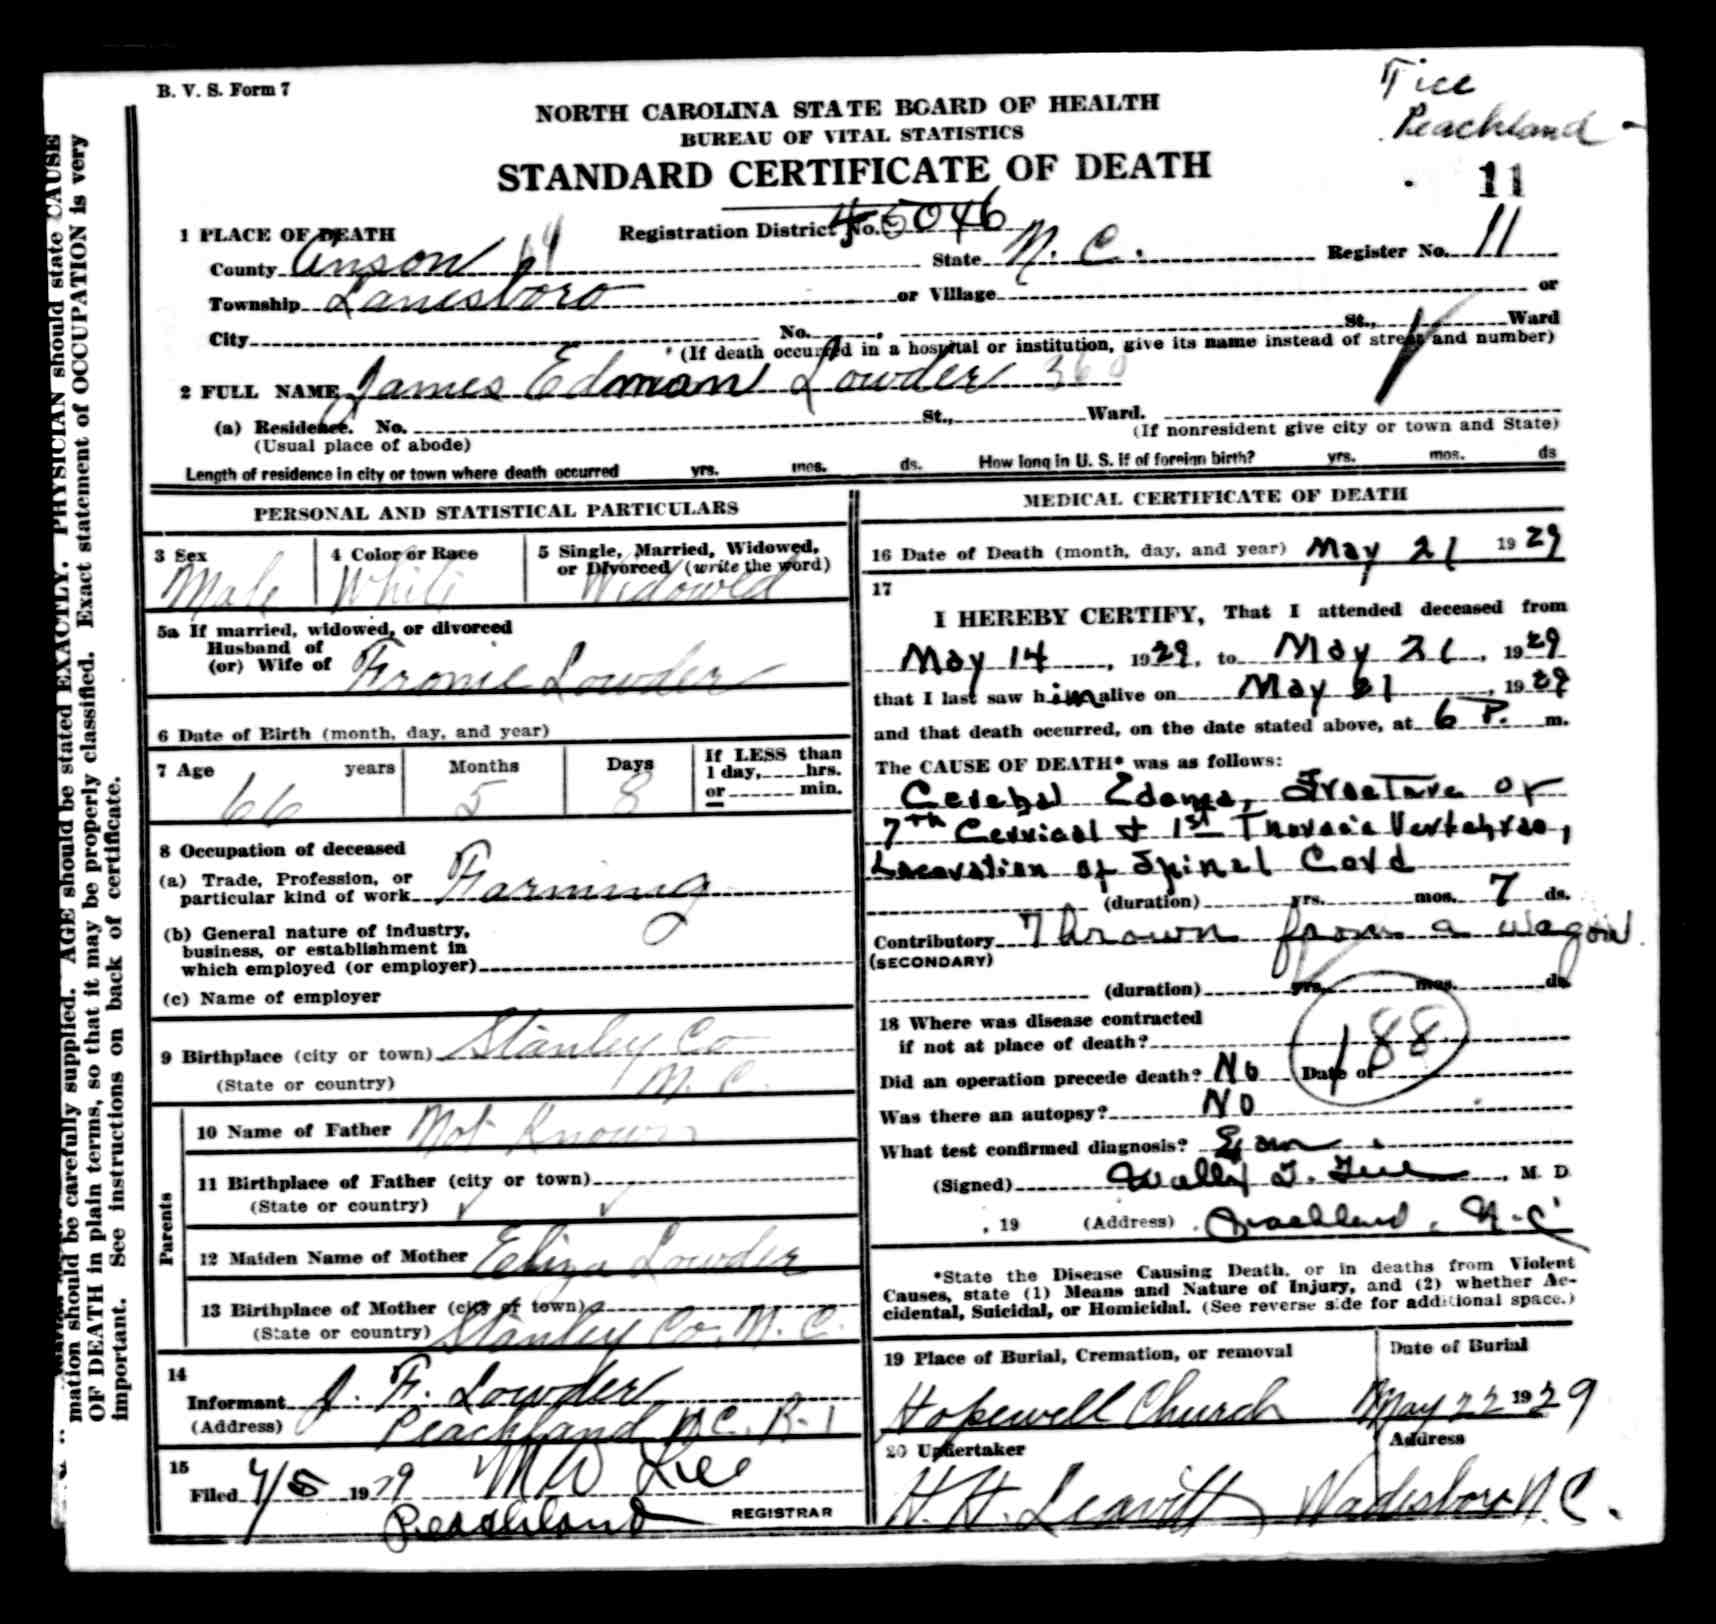 B. V. S. Form 7
Tice
Peachland
NORTH CAROLINA STATE BOARD OF HEALTH
BUREAU OF VITAL STATISTICS
STANDARD CERTIFICATE OF DEATH
11
1 PLACE OF DEATH Registration District No. 5046
County Anson State N. C. Register No. 11
Township Lanesboro or Village or
City No. , St., Ward
(If death occurred in a hospital or institution, give its name instead of street and number)
2 FULL NAME James Edman Lowder 360
(a) Residence. No. St., Ward.
(Usual place of abode) (If nonresident give city or town and State)
Length of residence in city or town where death occurred yrs. mos. ds. How long in U. S. if of foreign birth? yrs. mos. ds
PERSONAL AND STATISTICAL PARTICULARS
3 Sex 4 Color or Race 5 Single, Married, Widowed,
or Divorced (write the word)
Male White Widowed
5a If married, widowed, or divorced
Husband of
(or) Wife of Fronie Lowder
6 Date of Birth (month, day, and year)
7 Age years Months Days If LESS than
1 day, hrs.
or min.
66 5 8
8 Occupation of deceased
(a) Trade, Profession, or
particular kind of work Farming
(b) General nature of industry,
business, or establishment in
which employed (or employer)
(c) Name of employer
9 Birthplace (city or town) Stanley Co
(State or country) N. C.
Parents
10 Name of Father Not Known
11 Birthplace of Father (city or town)
(State or country)
12 Maiden Name of Mother Eliza Lowder
13 Birthplace of Mother (city or town)
(State or country) Stanley Co. N. C.
14
Informant J. F. Lowder
(Address) Peachland N.C. R-1
15
Filed 7/5 1929 M W Lee
Peachland REGISTRAR
MEDICAL CERTIFICATE OF DEATH
16 Date of Death (month, day, and year) May 21 1929
17
I HEREBY CERTIFY, That I attended deceased from
May 14, 1929, to May 21, 1929
that I last saw him alive on May 21, 1929
and that death occurred, on the date stated above, at 6 P. m.
The CAUSE OF DEATH* was as follows:
Cerebral Edema, Fracture of
7th Cervical & 1st Thoracic Vertebrae,
Laceration of Spinal Cord
(duration) yrs. mos. 7 ds.
Contributory Thrown from a wagon
(SECONDARY)
(duration) yrs. mos. ds.
18 Where was disease contracted
if not at place of death?
188
Did an operation precede death? No Date of
Was there an autopsy? No
What test confirmed diagnosis? Exam
(Signed) , M. D.
, 19 (Address) Peachland, N.C.
*State the Disease Causing Death, or in deaths from Violent
Causes, state (1) Means and Nature of Injury, and (2) whether Ac-
cidental, Suicidal, or Homicidal. (See reverse side for additional space.)
19 Place of Burial, Cremation, or removal Date of Burial
Hopewell Church May 22 1929
20 Undertaker Address
H. H. Leavitt Wadesboro N. C.
mation should be carefully supplied. AGE should be stated EXACTLY. PHYSICIAN should state CAUSE
OF DEATH in plain terms, so that it may be properly classified. Exact statement of OCCUPATION is very
important. See instructions on back of certificate.